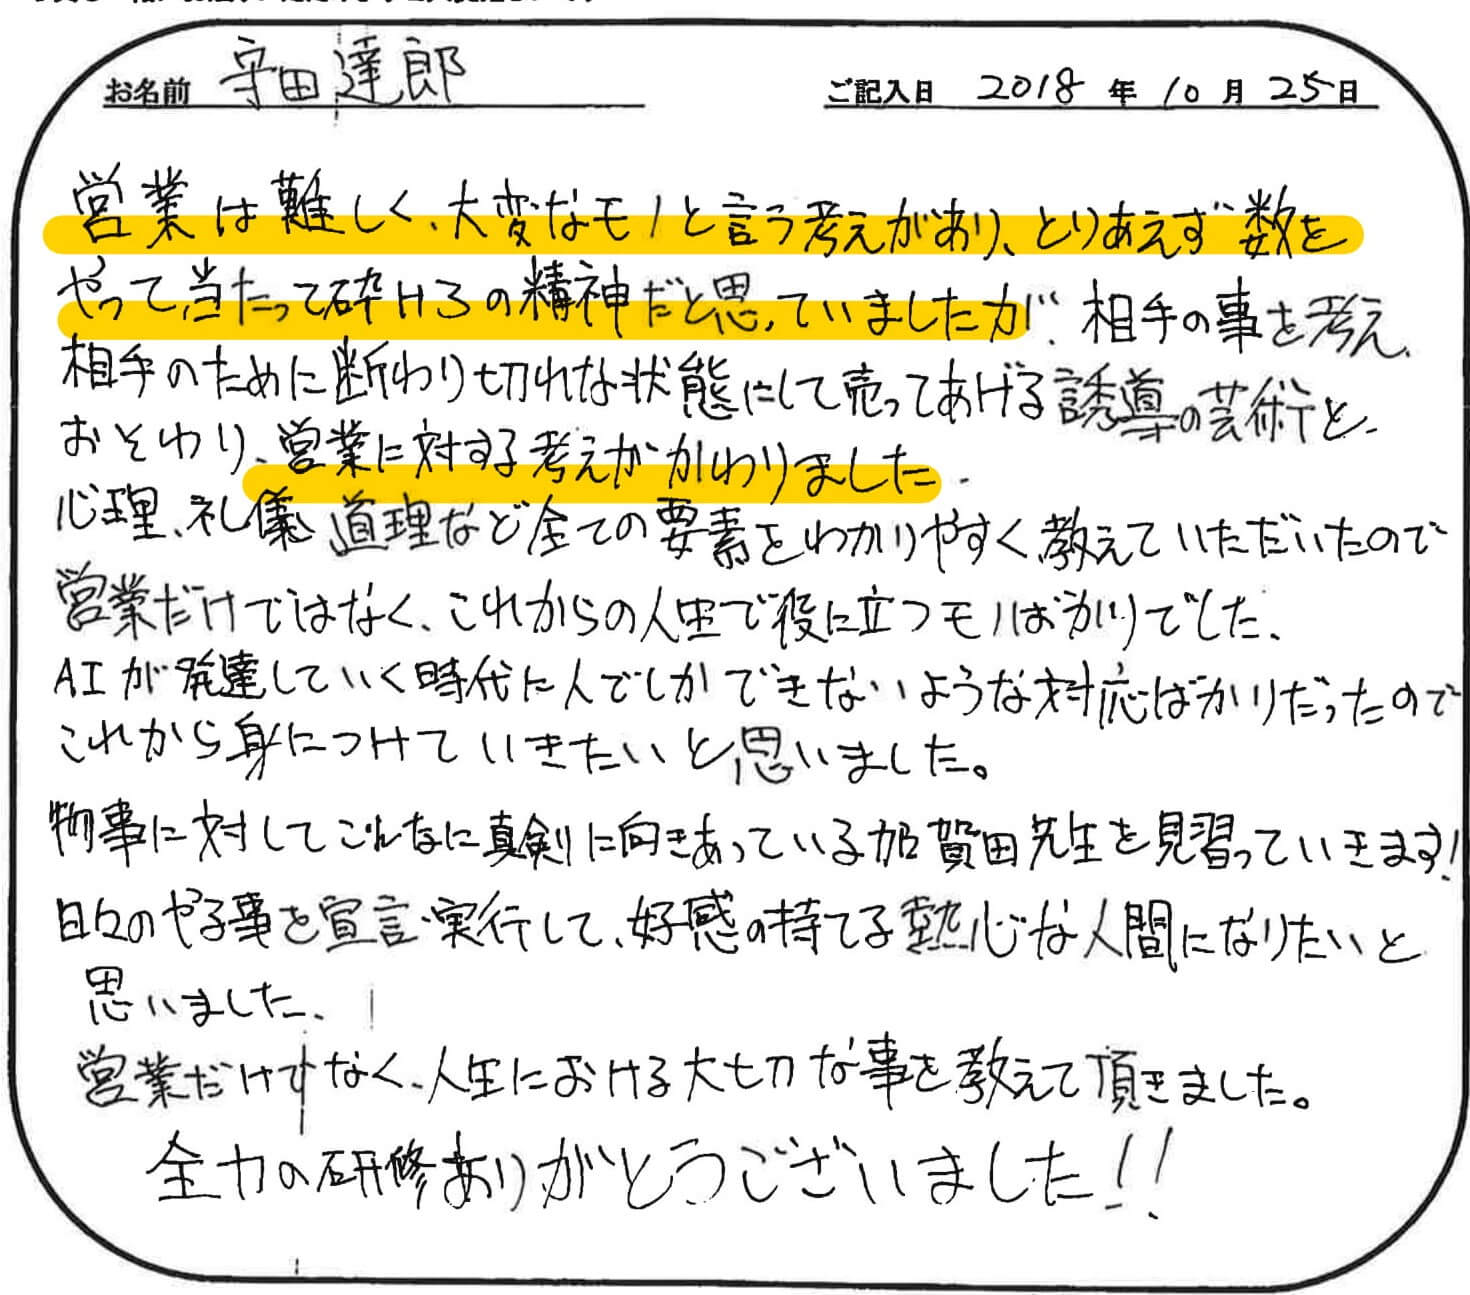 お名前 守田達郎 ご記入日 2018年10月25日
営業は難しく、大変なモノと言う考えがあり、とりあえず数を
やって、当たって砕けろの精神だと思っていましたが、相手の事を考え、
相手のために断わり切れな状態にして売ってあげる誘導の芸術と、
おそわり、営業に対する考えがかわりました。
心理、礼儀、道理など全ての要素をわかりやすく教えていただいたので
営業だけではなく、これからの人生で役に立つモノばかりでした、
AIが発達していく時代に人でしかできないような対応ばかりだったので
これから身につけていきたいと思いました。
物事に対してこんなに真剣に向きあっている加賀田先生を見習っていきます!
日々のやる事を宣言・実行して、好感の持てる熱心な人間になりたいと
思いました、
営業だけでなく、人生における大切な事を教えて頂きました。
全力の研修ありがとうございました!!